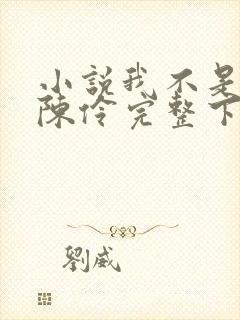 小説我不是
陳伶完整下
劉威